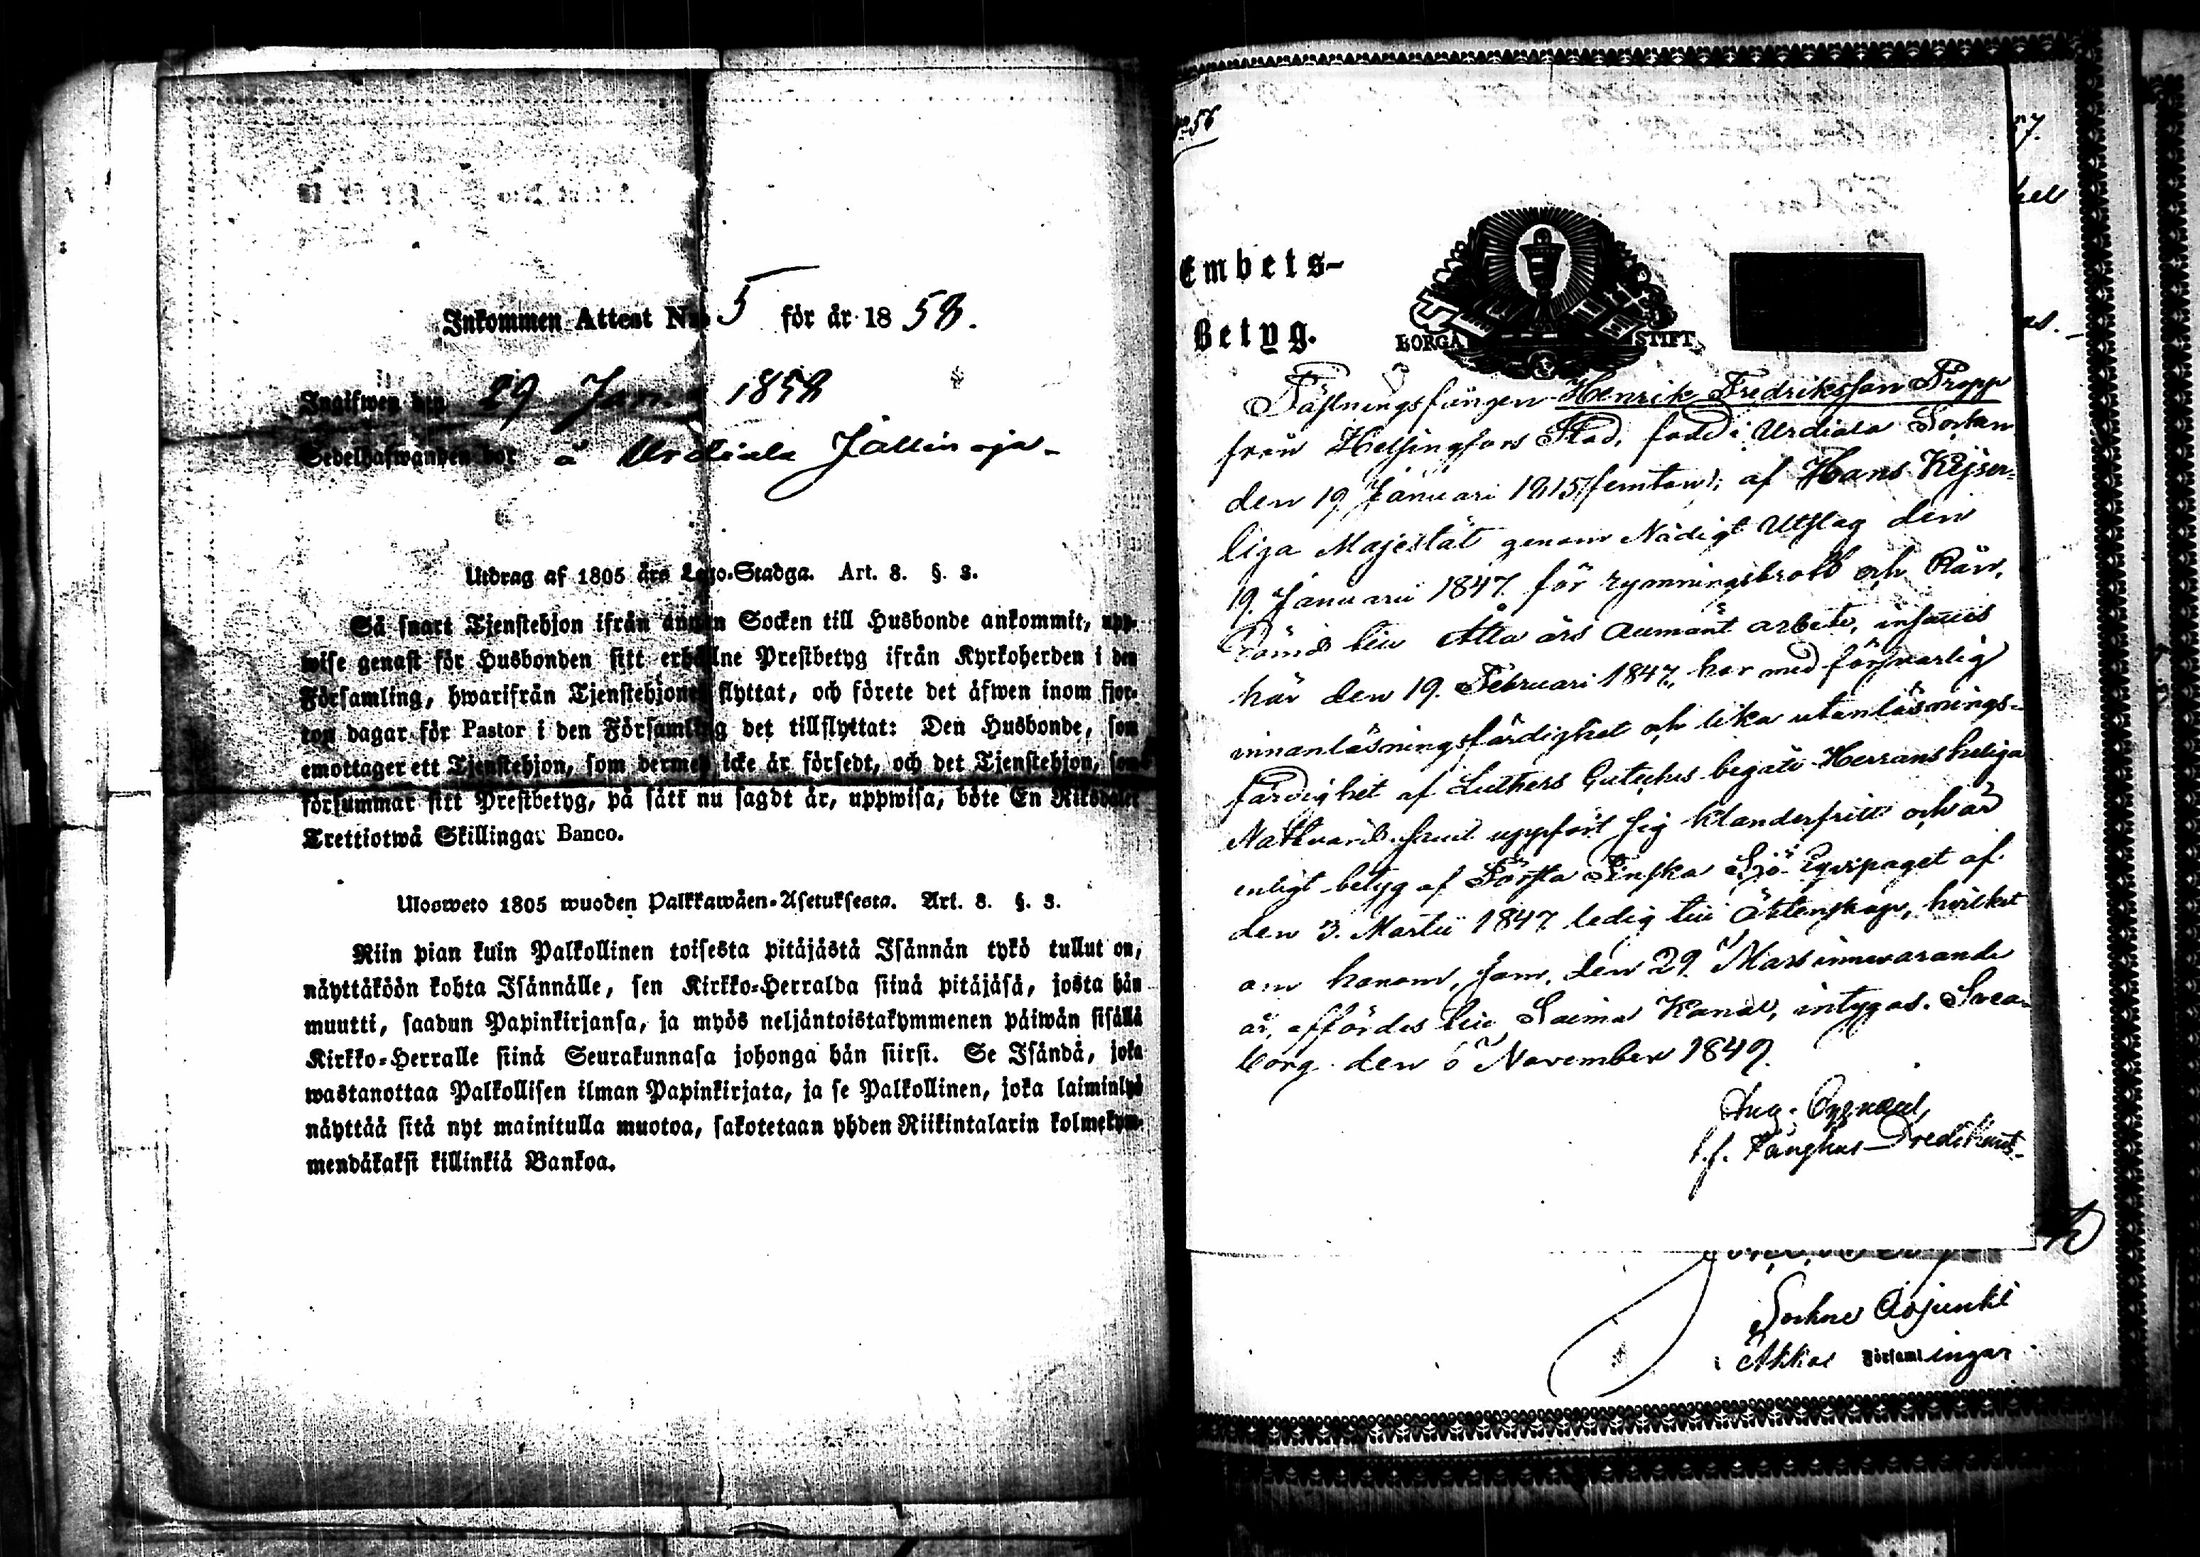 Inkommen Attest No 5 för år 1858.
Ingifwen den 29 Jan. 1858
Sedelhafwanden bor å Urdiala Jallinoja-
Utdrag af 1805 års Lego-Stadga. Art. 8. §. 3.
Så snart Tjenstehjon ifrån annan Socken till Husbonde ankommit, upp-
wise genast för Husbonden sitt erhållne Prestbetyg ifrån Kyrkoherden i den
Församling, hwarifrån Tjenstehjonet flyttat, och förete det äfwen inom fjor-
ton dagar för Pastor i den Församling det tillflyttat: Den Husbonde, som
emottager ett Tjenstehjon, som dermed icke är försedt, och det Tjenstehjon, som
försummar sitt Prestbetyg, på sätt nu sagdt är, uppwisa, böte En Riksdaler
Trettiotwå Skillingar Banco.
Ulosweto 1805 wuoden Palkkawäen-Asetuksesta. Art. 8. §. 3.
Niin pian kuin Palkollinen toisesta pitäjästä Isännän tykö tullut on,
näyttäköön kohta Isännälle, sen Kirkko-Herralda siinä pitäjäsä, josta hän
muutti, saadun Papinkirjansa, ja myös neljäntoistakymmenen päiwän sisällä
Kirkko-Herralle siinä Seurakunnasa johonga hän siirsi. Se Isändä, joka
wastanottaa Palkollisen ilman Papinkirjata, ja se Palkollinen, joka laiminlyö
näyttää sitä nyt mainitulla muotoa, sakotetaan yhden Riikintalarin kolmekym-
mendäkaksi killinkiä Bankoa.
No 56
Embets-
Betyg.
BORGÅ STIFT
Fästningsfången Henrik Fredriksson Propp
från Helsingfors Stad, född i Urdiala Socken
den 19 Januari 1815 (femton), af Hans Kejser-
liga Majestät genom Nådigt Utslag den
19 Januarii 1847 för rymningsbrott och Rån,
dömd till Åtta års allmänt arbete, insattes
här den 19. Februari 1847, har med försvarlig
innanläsningsfärdighet och lika utanläsnings-
färdighet af Luthers Cateches begått Herrans heliga
Nattvard samt uppfört sig klanderfritt och är
enligt betyg af Första Finska Sjö Equipaget af
den 3. Martii 1847 ledig till äktenskap, hvilket
om honom, som den 29 Mars innevarande
år affördes till Saima Kanal, intygas. Svea-
borg den 6 November 1849.
Aug.
t.f. Fånghus-Predikant-
57.
Sockne Adjunkt
i Akkas Församlingar